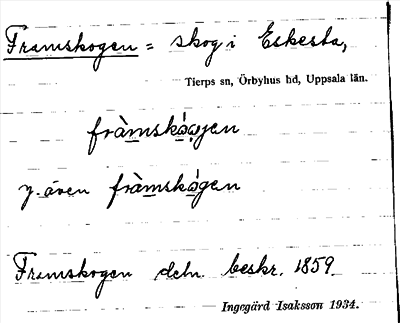 Framskogen = skog i Eskesta,
Tierps sn, Örbyhus hd, Uppsala län.
fràmskó̀gen
y. även fràmskó̀gen
Framskogen dehn. beskr. 1859
Ingegärd Isaksson 1934.